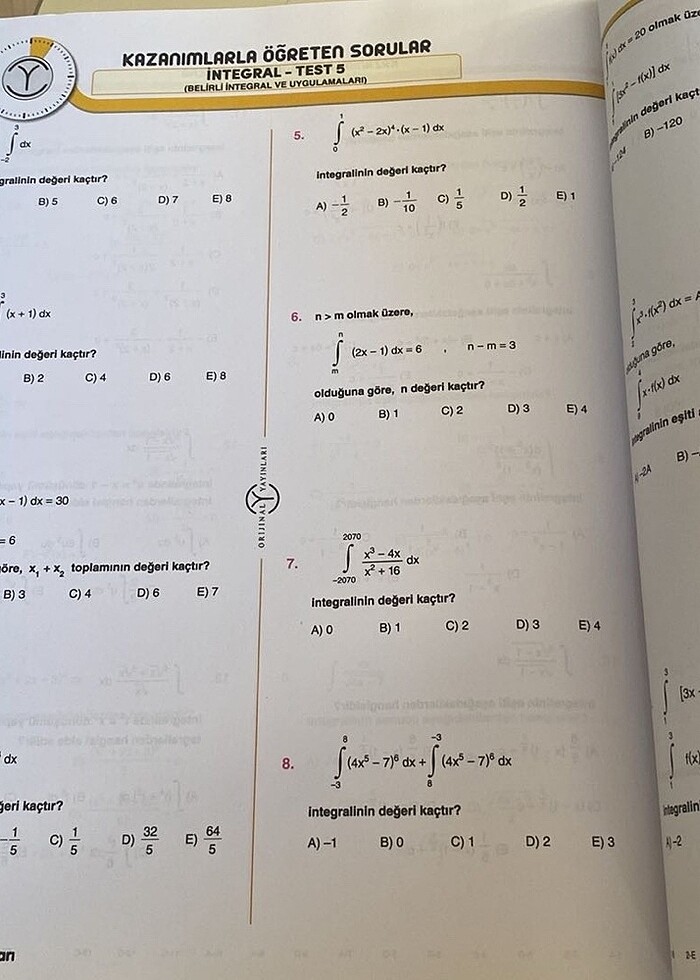 KAZANIMLARLA ÖĞRETEN SORULAR
İNTEGRAL – TEST 5
(BELİRLİ İNTEGRAL VE UYGULAMALARI)
3
∫ dx
-2
gralinin değeri kaçtır?
B) 5 C) 6 D) 7 E) 8
3
(x + 1) dx
linin değeri kaçtır?
B) 2 C) 4 D) 6 E) 8
x – 1) dx = 30
= 6
öre, x₁ + x₂ toplamının değeri kaçtır?
B) 3 C) 4 D) 6 E) 7
dx
ğeri kaçtır?
–1/5 C) 1/5 D) 32/5 E) 64/5
arı
ORİJİNAL YAYINLARI
5. ∫₀¹ (x² – 2x)⁴·(x – 1) dx
integralinin değeri kaçtır?
A) –1/2 B) –1/10 C) 1/5 D) 1/2 E) 1
6. n > m olmak üzere,
∫ₘⁿ (2x – 1) dx = 6 , n – m = 3
olduğuna göre, n değeri kaçtır?
A) 0 B) 1 C) 2 D) 3 E) 4
7. ∫₋₂₀₇₀²⁰⁷⁰ (x³ – 4x)/(x² + 16) dx
integralinin değeri kaçtır?
A) 0 B) 1 C) 2 D) 3 E) 4
8. ∫₋₃⁸ (4x⁵ – 7)⁶ dx + ∫₈⁻³ (4x⁵ – 7)⁶ dx
integralinin değeri kaçtır?
A) –1 B) 0 C) 1 D) 2 E) 3
f(x) dx = 20 olmak üze
[3x² – f(x)] dx
egralinin değeri kaçt
–124 B) –120
∫ x³·f(x²) dx = A
olduğuna göre,
∫ x·f(x) dx
integralinin eşiti
A) –2A B) –
3
∫ [3x
1
3
∫ f(x)
1
integralin
A) –2